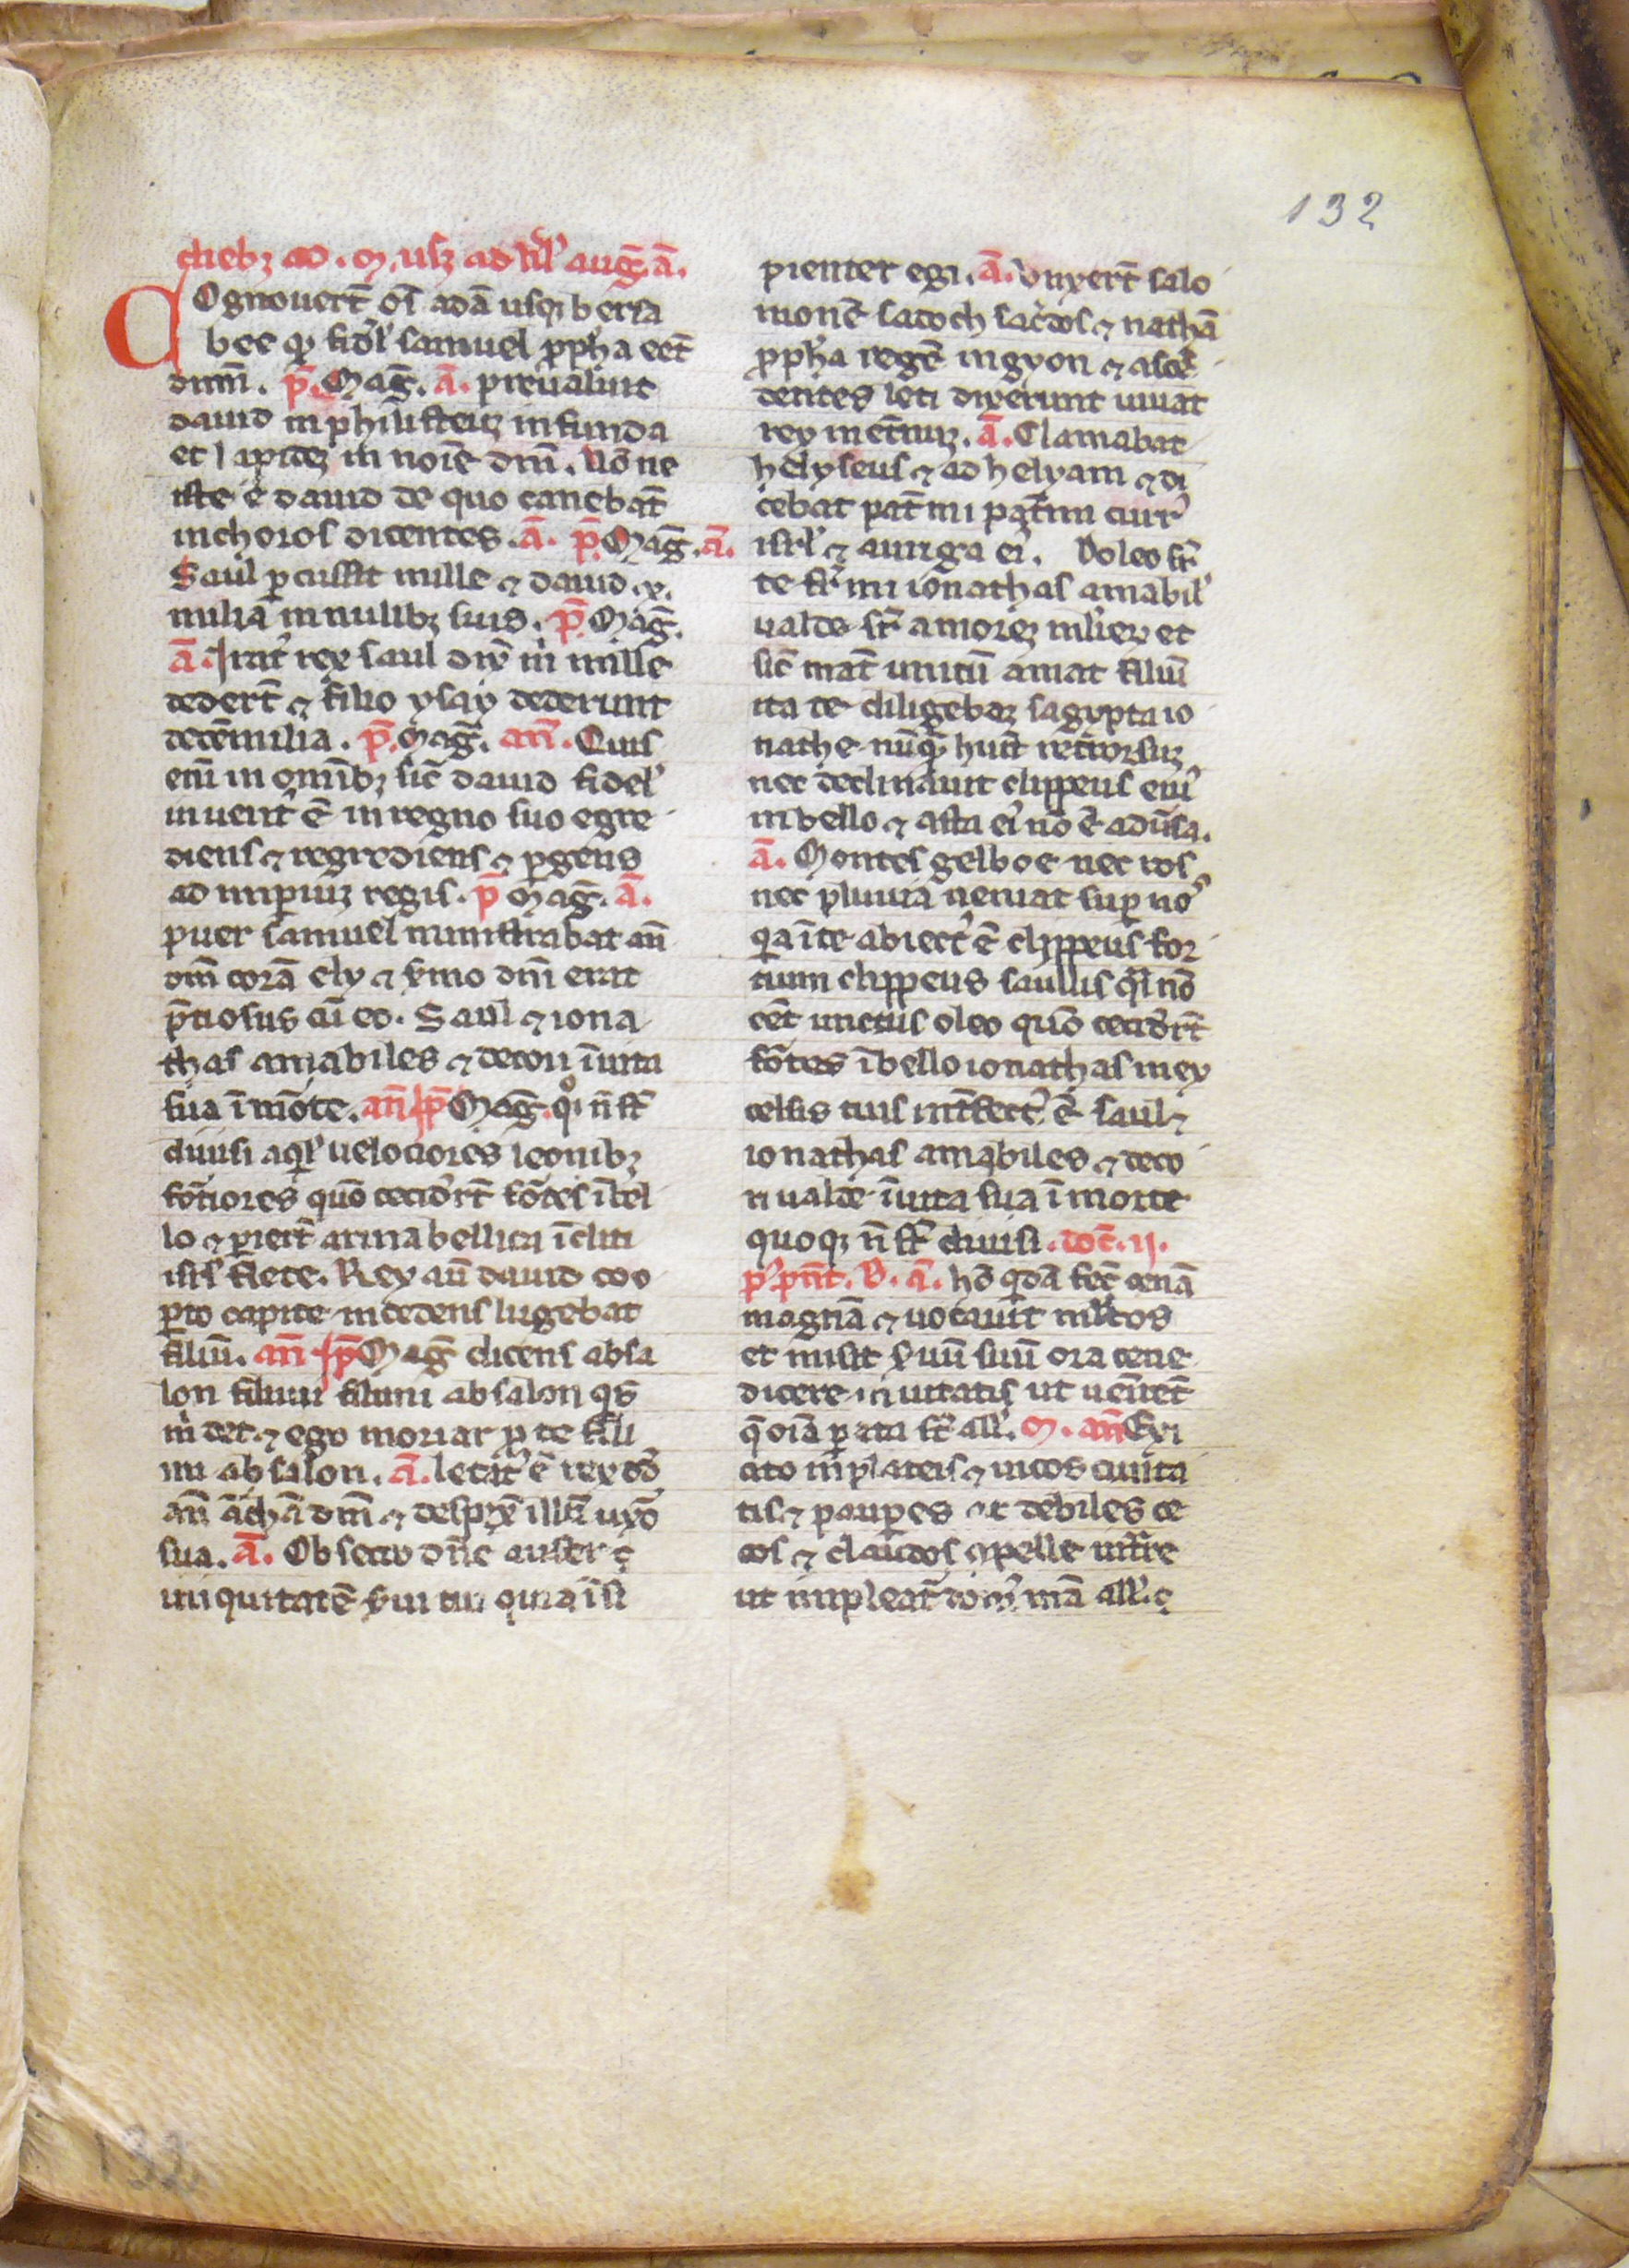 132
diebꝫ ad. m. usꝫ ad kl' aug̅. a̅.
Ognouert̅ oſ̅ adā uſqꝫ berſa
bee qꝫ fidel' samuel ꝓph̅a eet̅
dn̅i. p̅. Mag̅. a̅. preualuit
dauid in philiſteuꝫ in funda
et lapideꝫ in noīe dn̅i. Nōne
iſte ē dauid de quo canebat̅
in choros dicentes. a̅. p̅. Mag̅. a̅.
Saul ꝑcuſſit mille ⁊ dauid .x.
milia in milibꝫ suis. p̅. Mag̅.
a̅. Irat' rex saul dix̅ m̅ mille
dedert̅ ⁊ filio ysay dederunt
decēmilia. p̅. Mag̅. an̅. Quis
eni̅ in omībꝫ sic̅ dauid fidel'
inuent' ē in regno suo egre
diens ⁊ regrediens ⁊ ꝑgens
ad imꝑiuꝫ regis. p̅ Mag̅. a̅.
puer samuel miniſtrabat an̅
dn̅m corā ely ⁊ ẜmo dn̅i erat
p̅tiosus cū eo. Saul ⁊ iona
thas amabiles ⁊ decori ī uita
sua ī mōte. an̅ p̅ Mag̅. qͦꝫ n̅ ſt̅
diuiſi aql' uelociores leonibꝫ
fōtiores quō cecidert̅ fōtes ī bel
lo ⁊ ꝑiert̅ arma bellica īcliti
iſrl' flete. Rex au̅ dauid coo
ꝑto capite incedens lugebat
filiū. an̅ p̅ Mag̅ dicens absa
lon fili mi fili mi absalon qs̅
m̅ det ⁊ ego moriar ꝓ te fili
mi absalon. a̅. letat' ē rex dd̅
an̅ archā dn̅i ⁊ despex̅ illū uxō
sua. a̅. Obsecro dn̅e aufer
iniquitatē ẜui tui quia īsi
pienter egi. a̅. Vnxert̅ salo
monē sadoch sac̅dos ⁊ nathā
ꝓph̅a regē in gyon ⁊ ascē
dentes leti dixerunt uiuat
rex in et̅nuꝫ. a̅. Clamabat
helyseus ⁊ ad helyam ⁊ di
cebat pat̅ mi pat̅ mi curr'
iſrl' ⁊ auriga ei'. Doleo ſr̅
te fr̅ mi ionathas amabil'
ualde ſr̅ amoreꝫ mlier̅ et
sic̅ mat̅ unicū amat filiū
ita te diligebaꝫ sagypta io
nathe nūqꝫ huit̅ retrorsuꝫ
nec declinauit clippeus eiu'
in bello ⁊ aſta ei' nō ē adūsa.
a̅. Montes gelboe nec ros
nec pluuia ueniat suꝑ uos
qꝫ ī te abiect' ē clippeus for
tium clippeus saullis q̅i nō
eēt unctus oleo quō cecidert̅
fōtes ī bello ionathas in ex
celsis tuis int̅fect' ē saul ⁊
ionathas amabiles ⁊ deco
ri ualde ī uita sua ī morte
quoqꝫ n̅ ſt̅ diuisi. doc̅. ij.
p' pn̅t. B. a̅. hō qdā fec̅ cenā
magnā ⁊ uocauit ml'tos
et misit ẜuū suū ora cene
dicere inuitatis ut uēnet̅
q̅ oīa ꝑata ſt̅ all'. M. an̅ Exi
cito in plateis ⁊ uicos ciuita
tis ⁊ pauꝑes ac debiles ce
cos ⁊ claudos ꝯpelle int̅re
ut impleat̅ dom' mā all'.